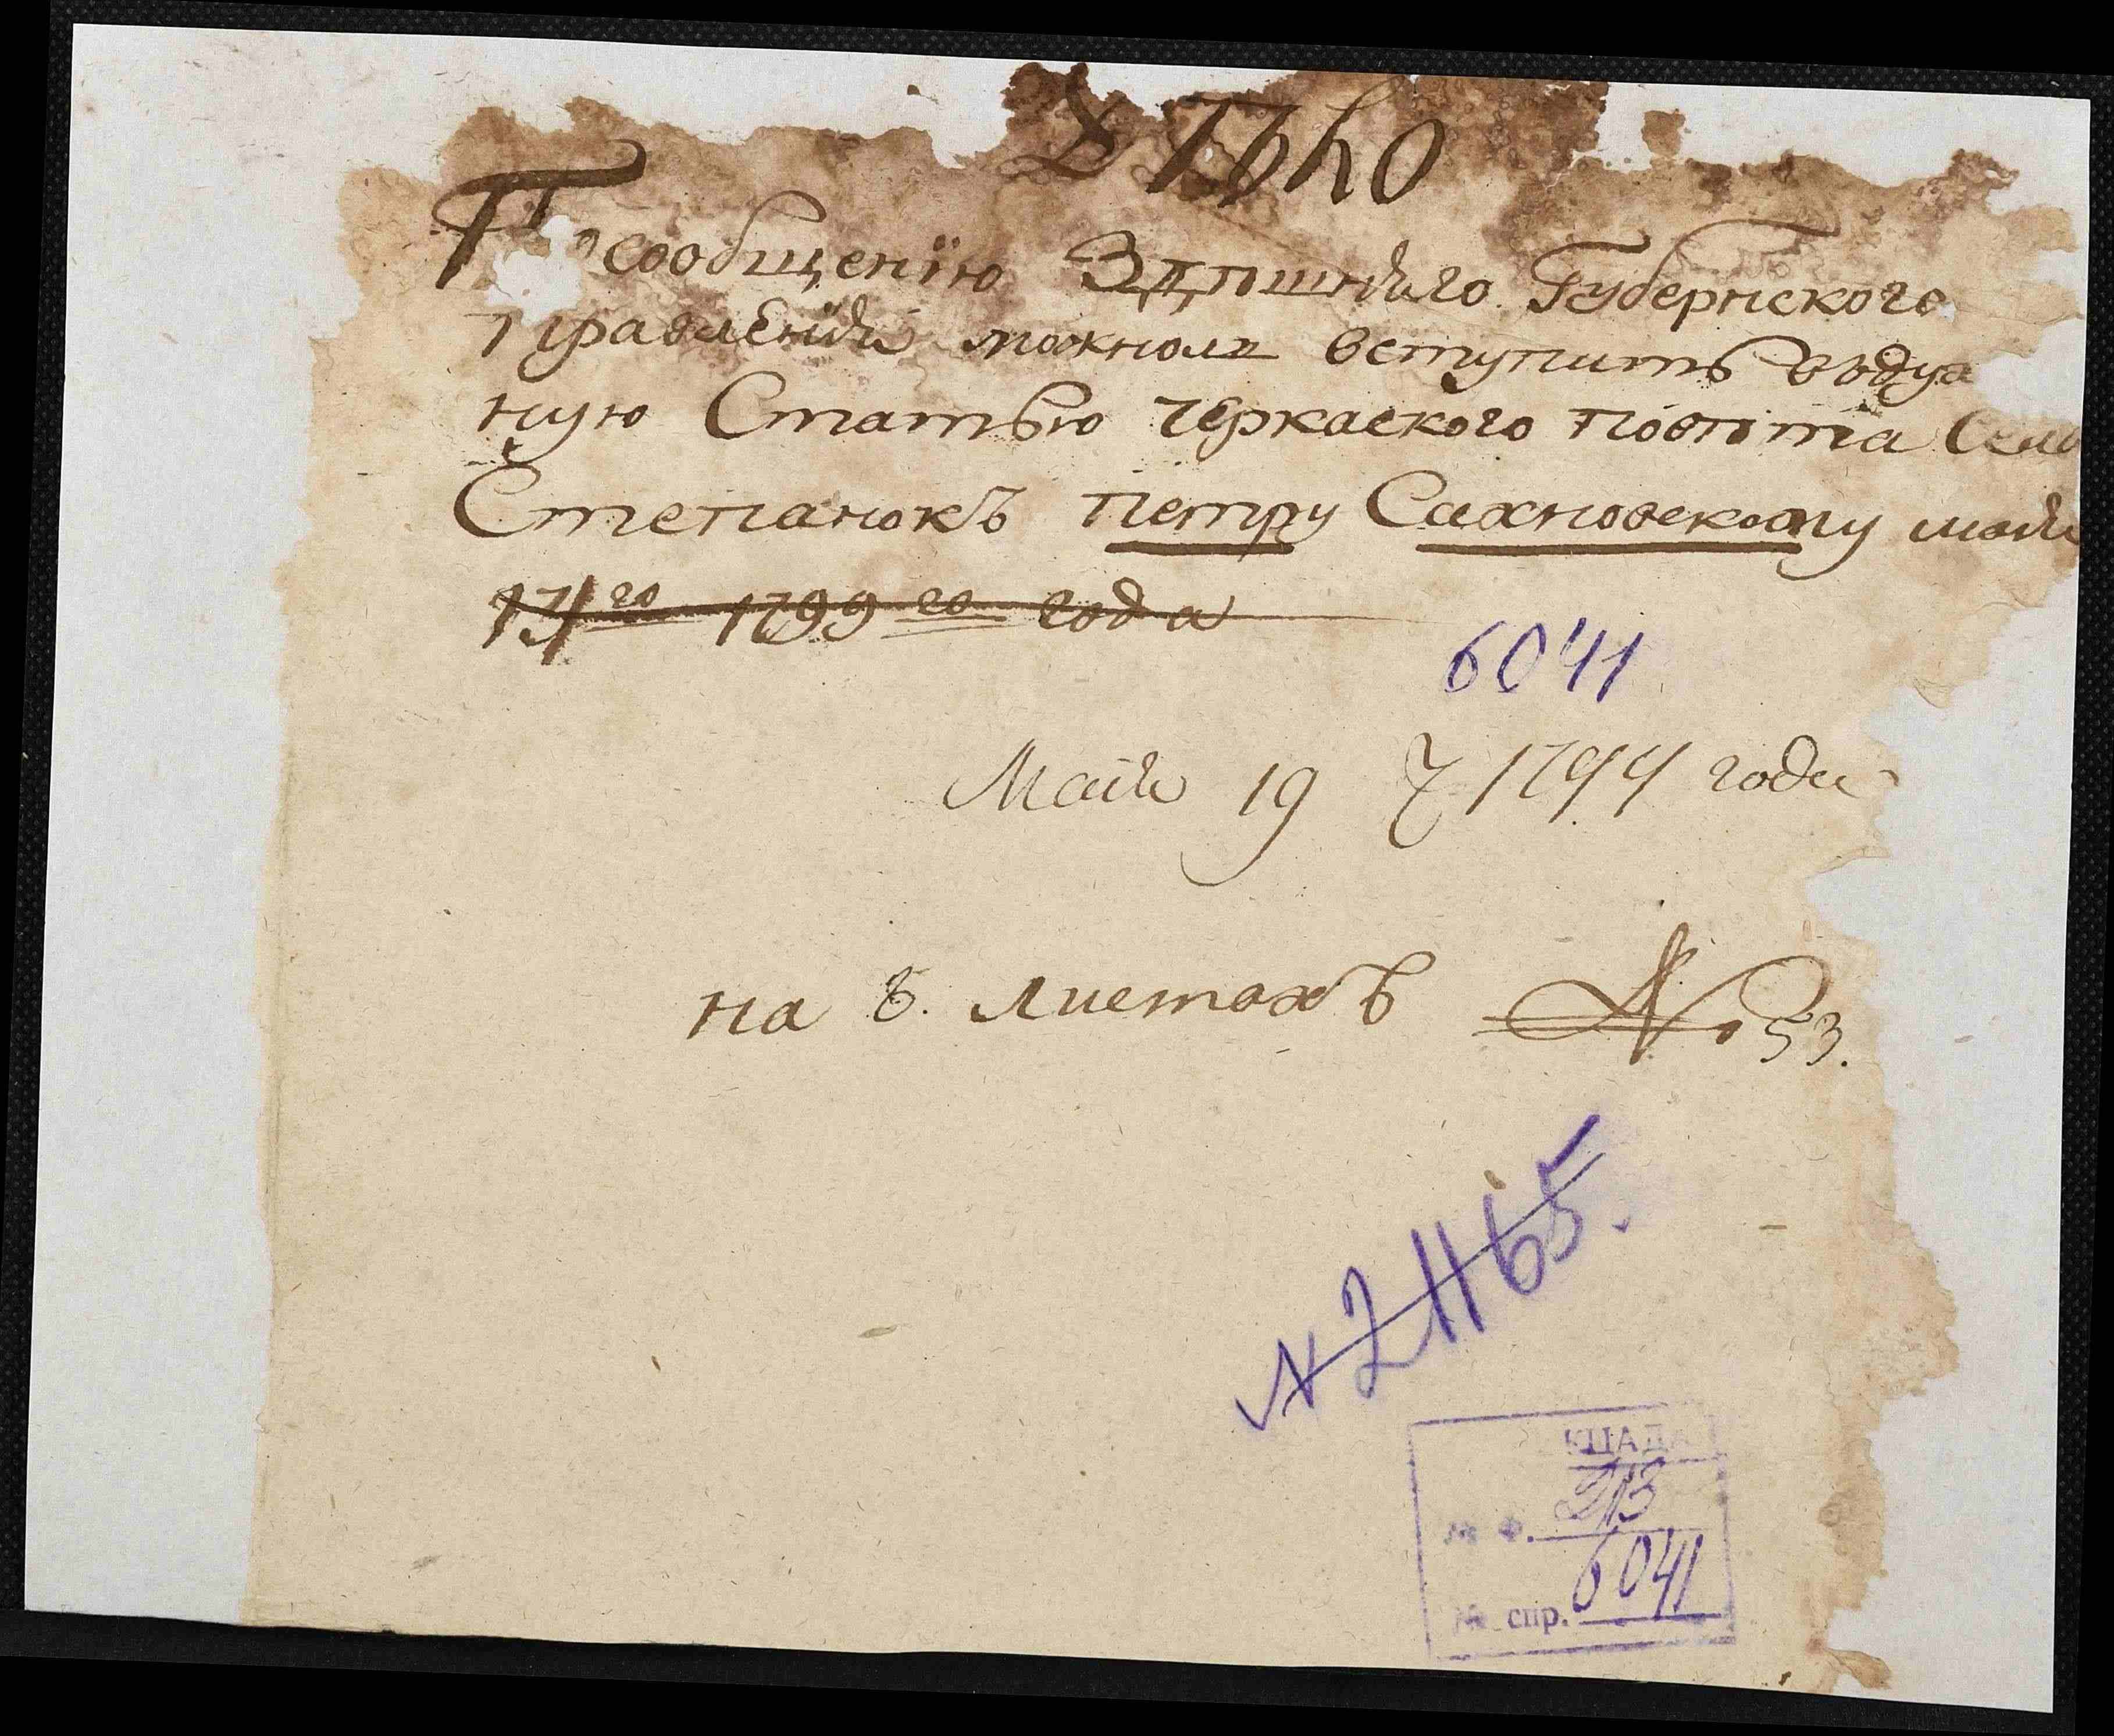 Дѣло
По сообщенїю Здѣшняго Губернского
правленїя можноли вступить в
ную Статью Черкаского повѣта Села
Степанокъ Петру Сахновскому маия
17го 1799го года
6041
Маия 19 1794 года
на 6. листахъ № 53.
№ 21165.
ЦДІА
№ Ф. 2/3
6041
№ спр. 6041